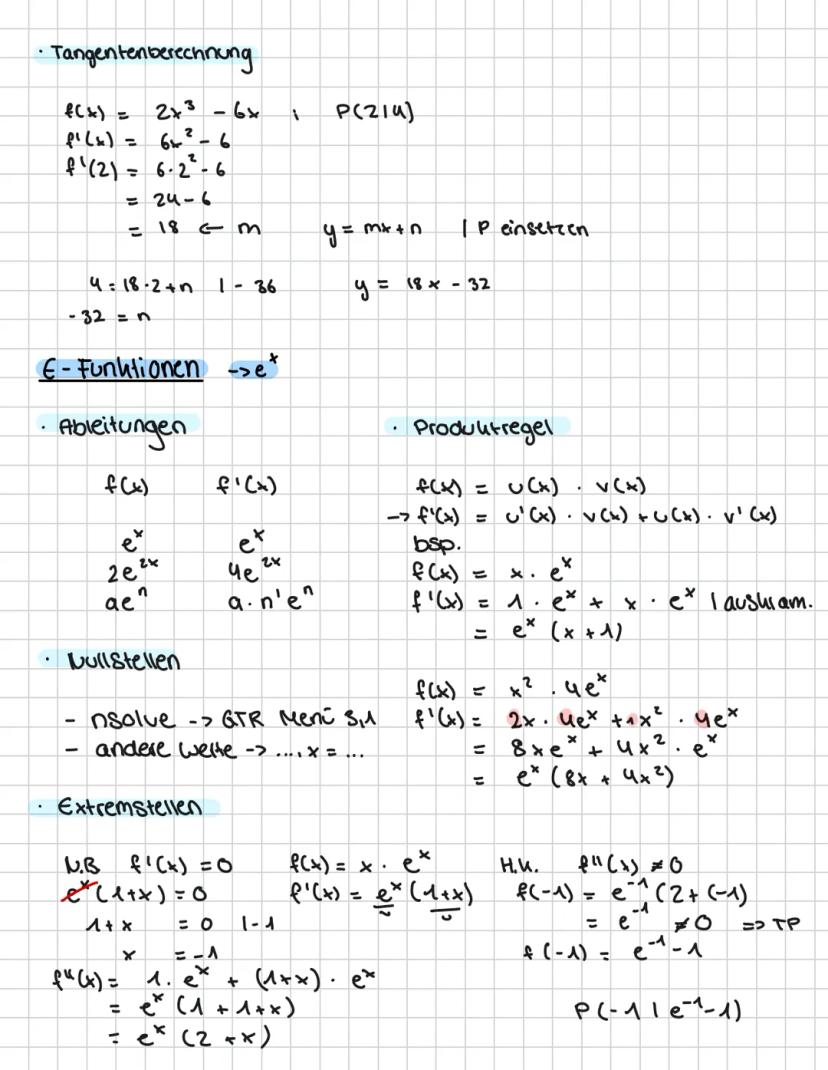 · Tangentenberechnung
f(x) = 2x³ - 6x ; P(2|4)
f'(x) = 6x² - 6
f'(2) = 6·2² - 6
= 24 - 6
= 18 ← m y = mx+n | P einsetzen
4 = 18·2+n | - 36 y = 18x - 32
-32 = n
E-Funktionen -> eˣ
· Ableitungen
f(x) f'(x)
eˣ eˣ
2e²ˣ 4e²ˣ
aeⁿ a·n'eⁿ
· Produktregel
f(x) = u(x) · v(x)
-> f'(x) = u'(x) · v(x) + u(x) · v'(x)
bsp.
f(x) = x · eˣ
f'(x) = 1 · eˣ + x · eˣ | ausklam.
= eˣ (x+1)
f(x) = x² · 4eˣ
f'(x) = 2x · 4eˣ + 1x² · 4eˣ
= 8xeˣ + 4x² · eˣ
= eˣ (8x + 4x²)
· Nullstellen
- nsolve -> GTR Menü 3,1
- andere Werte -> ...,x = ...
· Extremstellen
N.B f'(x) = 0
eˣ(1+x) = 0
1+x = 0 |-1
x = -1
f(x) = x · eˣ
f'(x) = eˣ (1+x)
f''(x) = 1 · eˣ + (1+x) · eˣ
= eˣ (1 + 1+x)
= eˣ (2 + x)
H.K. f''(x) ≠ 0
f(-1) = e⁻¹ (2+(-1)
= e⁻¹ ≠ 0 => TP
f(-1) = e⁻¹ - 1
P(-1 | e⁻¹-1)